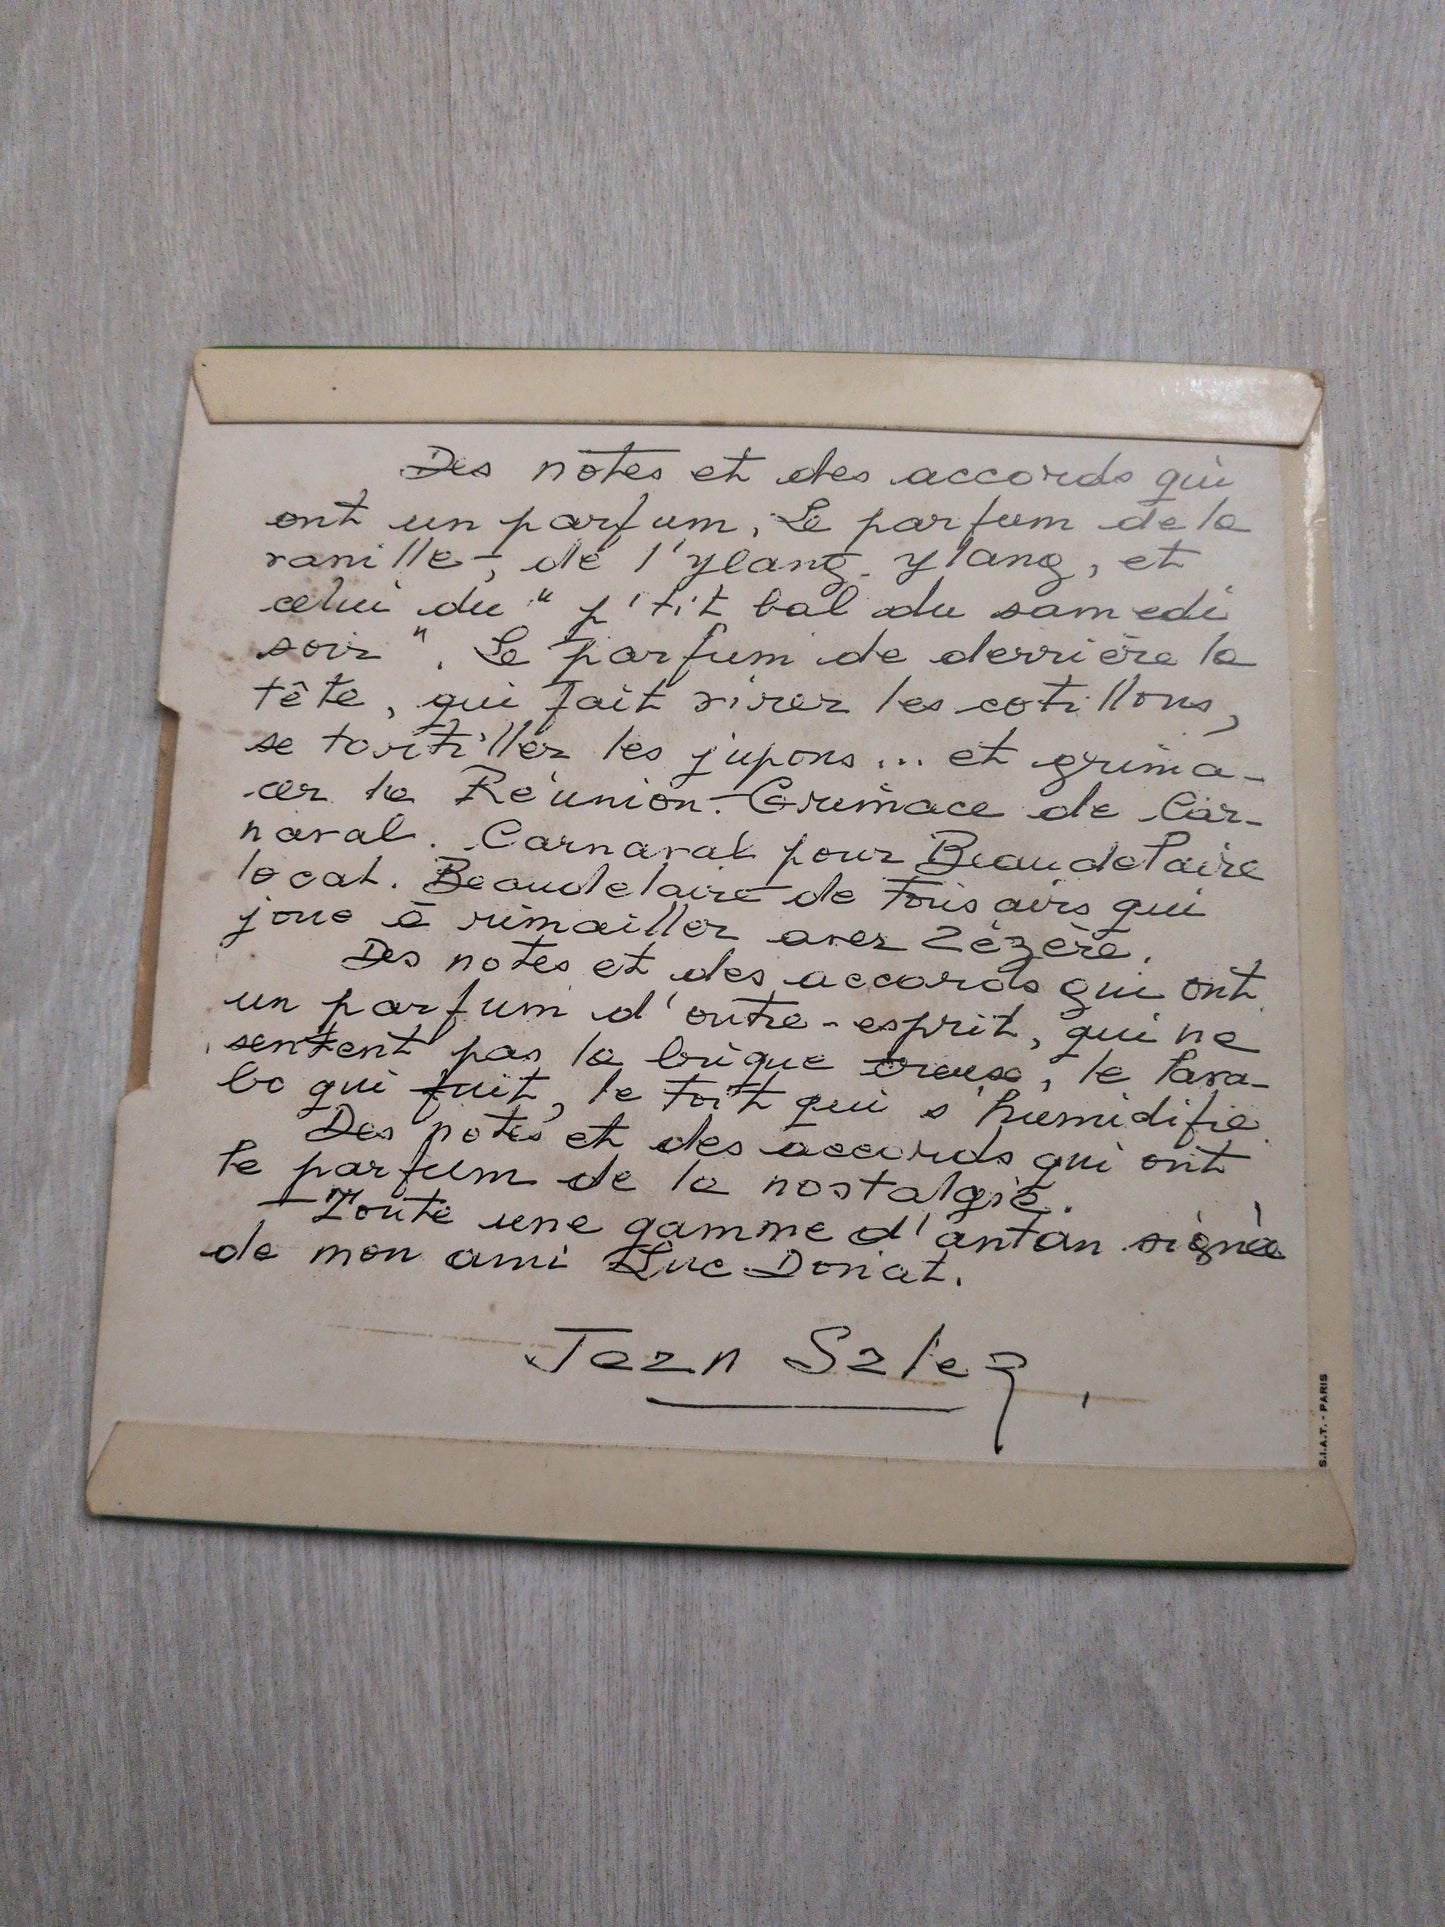 Des notes et des accords qui
ont un parfum. Le parfum de la
vanille, de l'ylang-ylang, et
celui du "p'tit bal du samedi
soir". Le parfum de derrière la
tête, qui fait virer les cotillons,
se tortiller les jupons... et grima-
cer la Réunion. Grimace de Car-
naval. Carnaval pour Beaudelaire
local. Beaudelaire de tous airs qui
joue à rimailler avec Zézère.
Des notes et des accords qui ont
un parfum d'outre-esprit, qui ne
sentent pas la brique creuse, le lava-
bo qui fuit, le toit qui s'humidifie.
Des notes et des accords qui ont
le parfum de la nostalgie.
Toute une gamme d'antan signée
de mon ami Luc Donat.
Jean
S.I.A.T. - PARIS